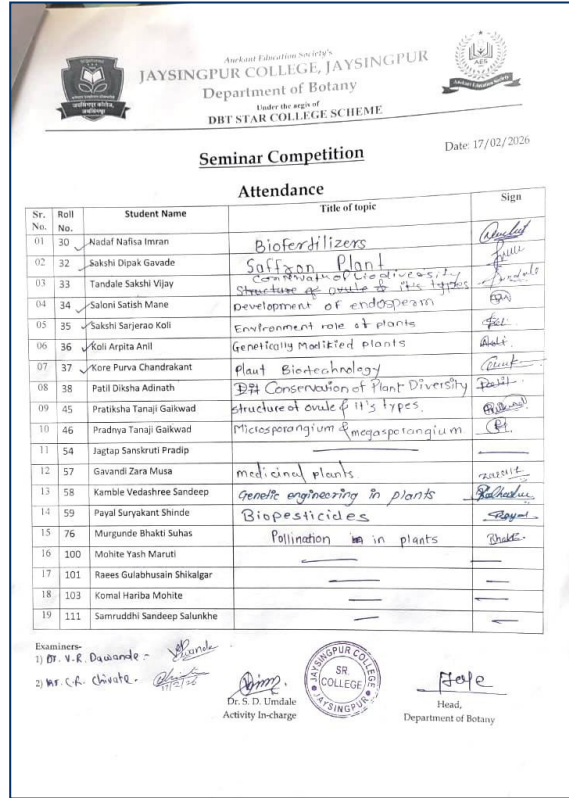 Anekant Education Society's
JAYSINGPUR COLLEGE, JAYSINGPUR
Department of Botany
Under the aegis of
DBT STAR COLLEGE SCHEME
जयसिंगपूर कॉलेज,
जयसिंगपूर
AES
Anekant Education Society
Date: 17/02/2026
Seminar Competition
Attendance
Sr. No. Roll No. Student Name Title of topic Sign
01 30 Nadaf Nafisa Imran Bioferdilizers
02 32 Sakshi Dipak Gavade Saffron Plant
03 33 Tandale Sakshi Vijay Conservatn of biodiversity
Structure of ovule & it's types
04 34 Saloni Satish Mane Development of endosperm
05 35 Sakshi Sarjerao Koli Environment role of plants
06 36 Koli Arpita Anil Genetically Modified plants
07 37 Kore Purva Chandrakant Plant Biotechnology
08 38 Patil Diksha Adinath Conservation of Plant Diversity Patil
09 45 Pratiksha Tanaji Gaikwad structure of ovule & it's types.
10 46 Pradnya Tanaji Gaikwad Microsporangium & megasporangium
11 54 Jagtap Sanskruti Pradip
12 57 Gavandi Zara Musa medicinal plants
13 58 Kamble Vedashree Sandeep Genetic engineering in plants
14 59 Payal Suryakant Shinde Biopesticides Payal
15 76 Murgunde Bhakti Suhas Pollination in plants Bhakti
16 100 Mohite Yash Maruti
17 101 Raees Gulabhusain Shikalgar
18 103 Komal Hariba Mohite
19 111 Samruddhi Sandeep Salunkhe
Examiners-
1) Dr. V.R. Dawande -
2) Mr. C.R. Chivate - 17/2/26
JAYSINGPUR COLLEGE
SR.
COLLEGE
JAYSINGPUR
Dr. S. D. Umdale
Activity In-charge
Head,
Department of Botany